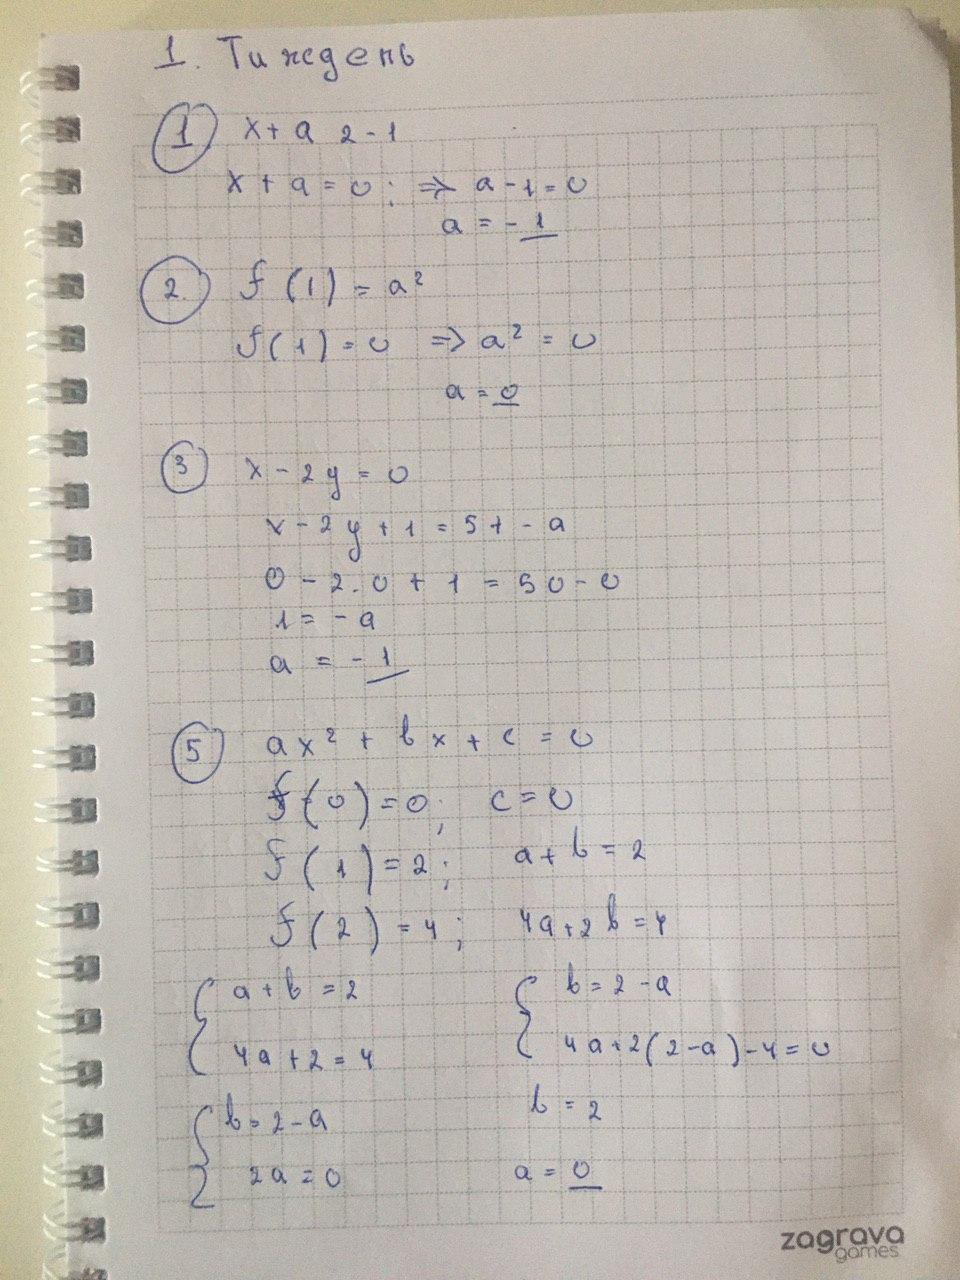 1. Тиждень
1 x + a 2 - 1
x + a = 0 ; => a - 1 = 0
a = - 1
2. f (1) = a²
f(1) = 0 => a² = 0
a = 0
3 x - 2y = 0
x - 2y + 1 = 5t - a
0 - 2.0 + 1 = 50 - 0
1 = - a
a = - 1
5 ax² + bx + c = 0
f(0) = 0; c = 0
f(1) = 2; a + b = 2
f(2) = 4; 4a + 2b = 4
a + b = 2 b = 2 - a
4a + 2 = 4 4a + 2(2-a) - 4 = 0
b = 2 - a b = 2
2a = 0 a = 0
zagrava
games